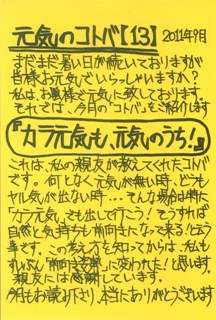 元気のコトバ【13】 2011年9月
まだまだ暑い日が続いておりますが
皆様お元気でいらっしゃいますか?
私は、お陰様で元気に致しております。
それでは、今月の「コトバ」をご紹介します
『カラ元気も、元気のうち!』
これは、私の親友が教えてくれたコトバ
です。何となく元気が無い時、どうも
ヤル気が出ない時…そんな場合は特に
「カラ元気」でも出して行こう!そうすれば
自然と気持ちも前向きになって来る!と云う
事です。この考え方を知ってからは、私も
ずいぶん「前向き」に変われた!と思います。
親友には感謝しています。
今月もお読み下さり、本当にありがとうございます